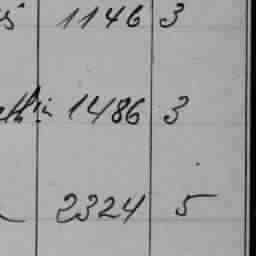 1146 3
1486 3
2324 5